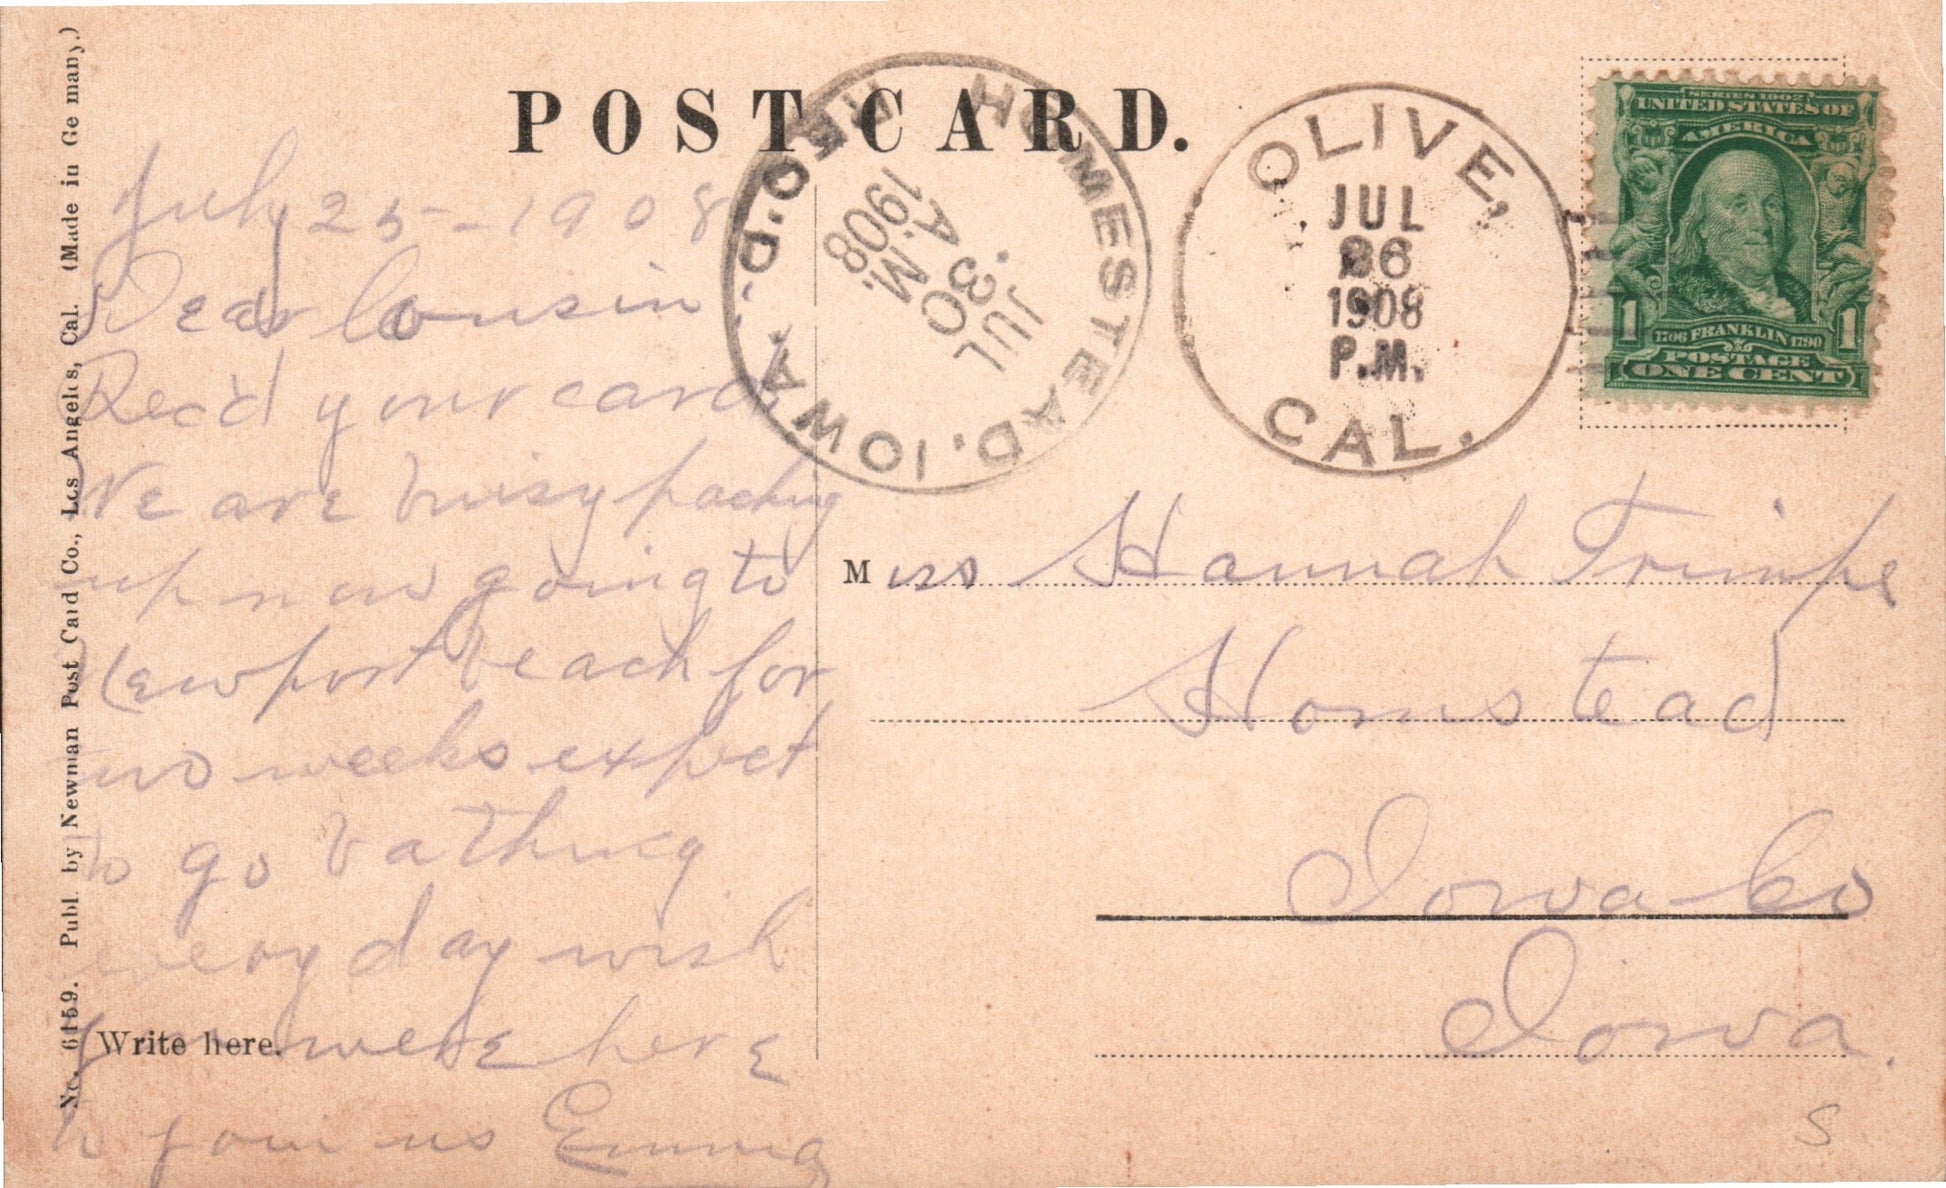 POST CARD.
No. 6159. Publ. by Newman Post Card Co., Los Angeles, Cal. (Made in Germany.)
July 25 - 1908
Dear Cousin
Rec'd your card,
We are buisy packing
up now going to
Newport beach for
two weeks expect
to go bathing
every day wish
you were here
to join us Emma
Write here.
HOMESTEAD, IOWA.
REC'D.
JUL
30
A.M.
1908.
OLIVE,
JUL
26
1908
P.M.
CAL.
SERIES 1902
UNITED STATES OF
AMERICA
1 1706 FRANKLIN 1790 1
POSTAGE
ONE CENT
Miss Hannah Trimpe
Homstead
Iowa Co
Iowa.
S